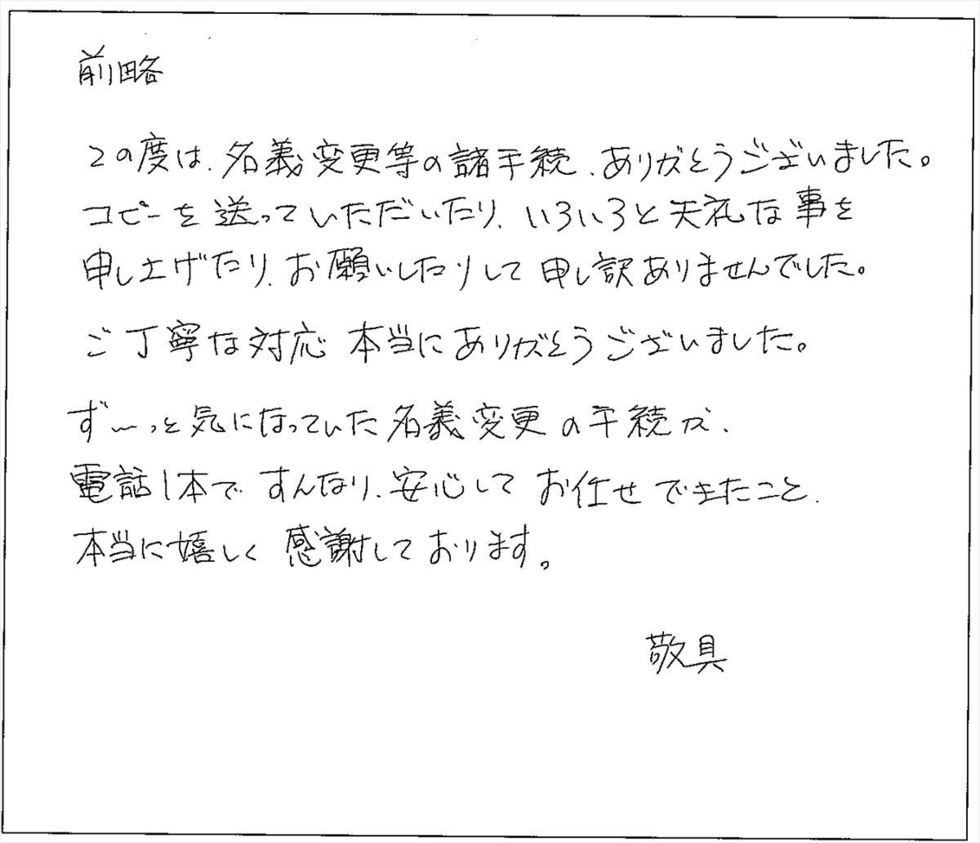 前略
この度は、名義変更等の諸手続、ありがとうございました。
コピーを送っていただいたり、いろいろと失礼な事を
申し上げたり、お願いしたりして申し訳ありませんでした。
ご丁寧な対応本当にありがとうございました。
ず〜っと気になっていた名義変更の手続が、
電話1本ですんなり、安心してお任せできたこと、
本当に嬉しく感謝しております。
敬具